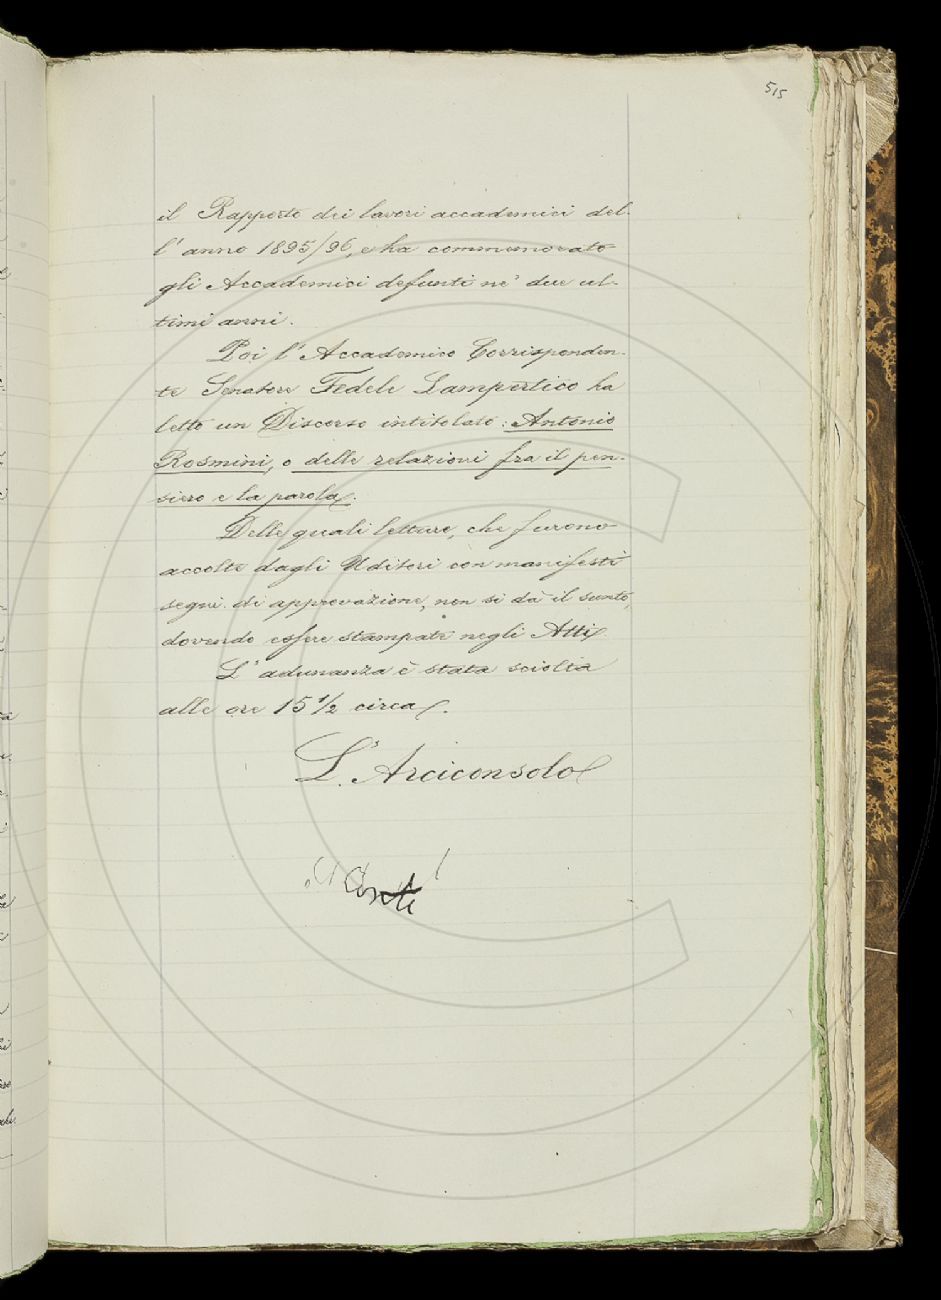 515
il Rapporto dei lavori accademici del-
l'anno 1895/96, e ha commemorato
gli Accademici defunti ne' due ul-
timi anni.
Poi l'Accademico Corrisponden-
te Senatore Fedele Lampertico ha
letto un Discorso intitolato: Antonio
Rosmini, o delle relazioni fra il pen-
siero e la parola.
Delle quali letture, che furono
accolte dagli Uditori con manifesti
segni di approvazione, non si dà il sunto,
dovendo essere stampate negli Atti.
L'adunanza è stata sciolta
alle ore 15 1/2 circa.
L'Arciconsolo
Conti